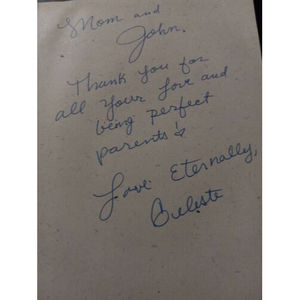 Mom and
John.
Thank you for
all your love and
being perfect
parents!
Love Eternally,
Celeste